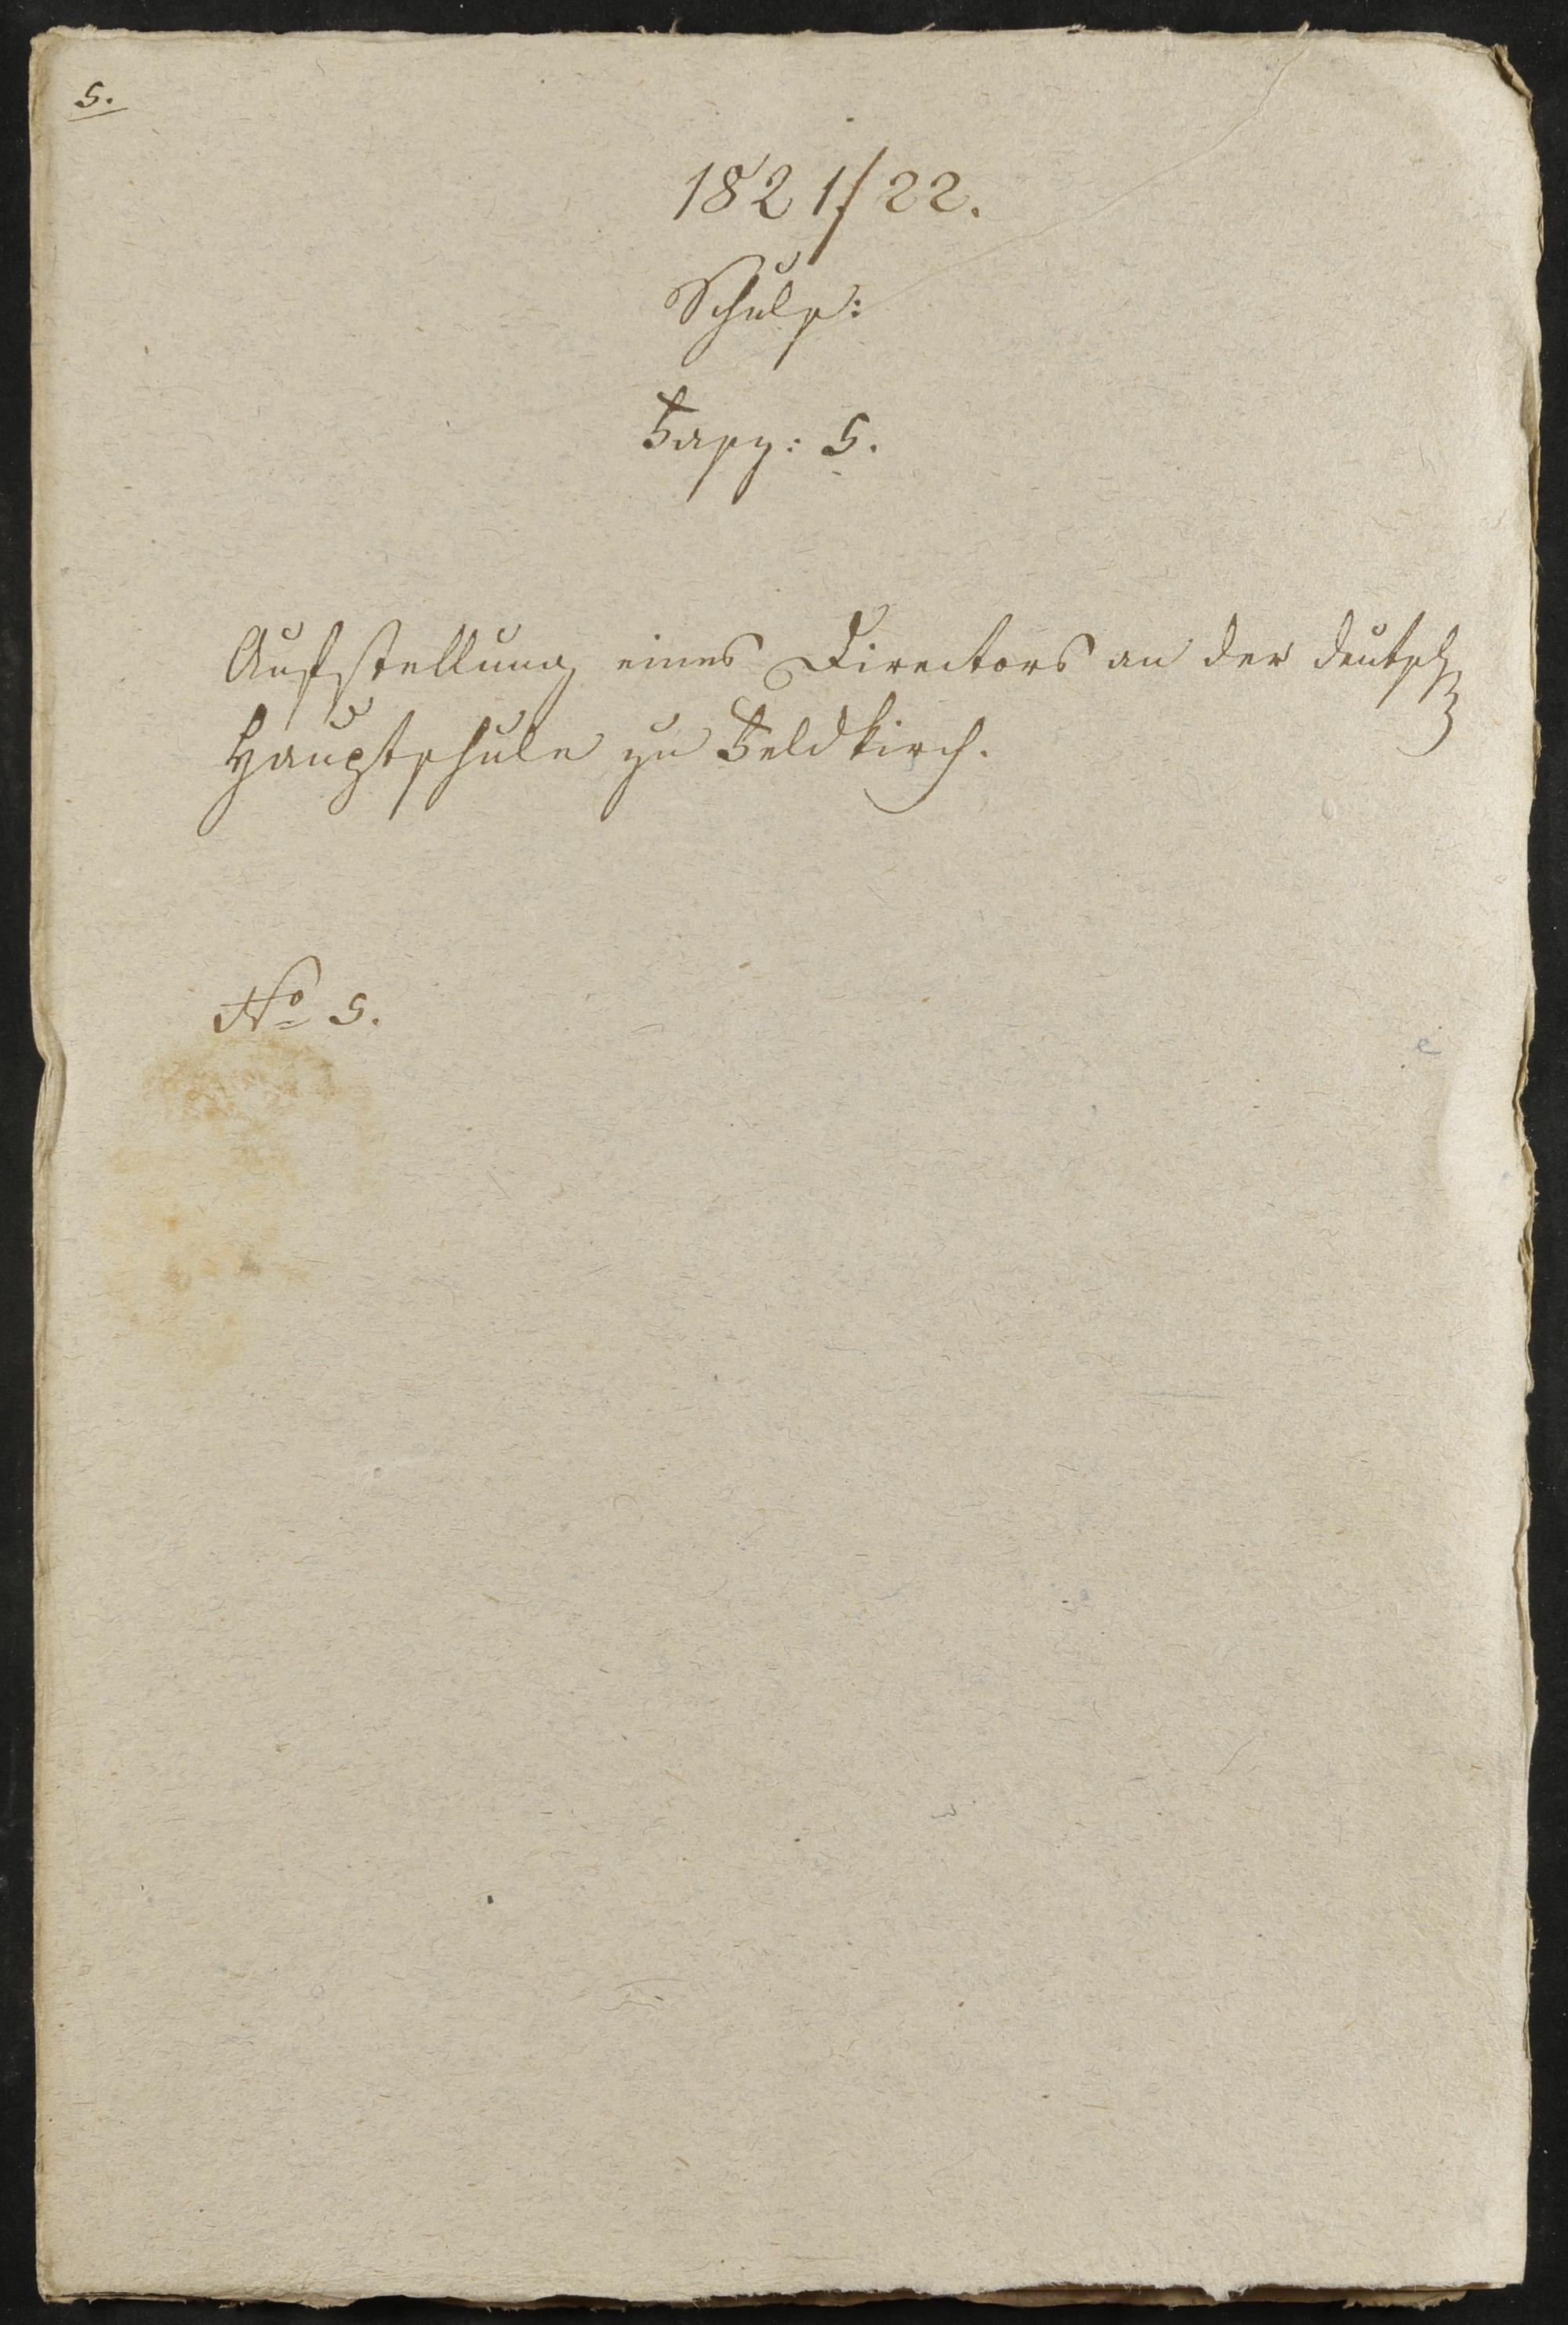 5.
1821/22.
Schuls:
Fasz: 5.
Aufstellung eines Directors an der deutsch
Hauptschule zu Feldkirch.
No 5.